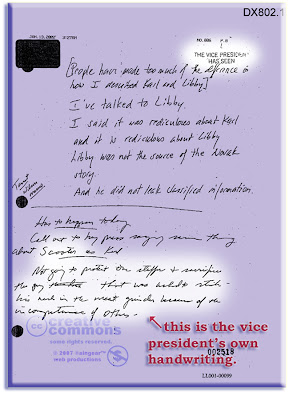 DX802.1
THE VICE PRESIDENT
HAS SEEN
[People have made too much of the difference in
how I described Karl and Libby]
I've talked to Libby.
I said it was rediculous about Karl
and it is rediculous about Libby
Libby was not the source of the Novak
story.
And he did not leak classified information.
Has to happen today
Call out to key press saying same thing
about Scooter as Karl
Not going to protect one staffer + sacrifice
the guy that was asked to stick
his neck in the meat grinder because of the
incompetence of others.
creative
commons
some rights reserved.
© 2007
web productions
this is the vice
president's own
handwriting.
002518
LL001-00099